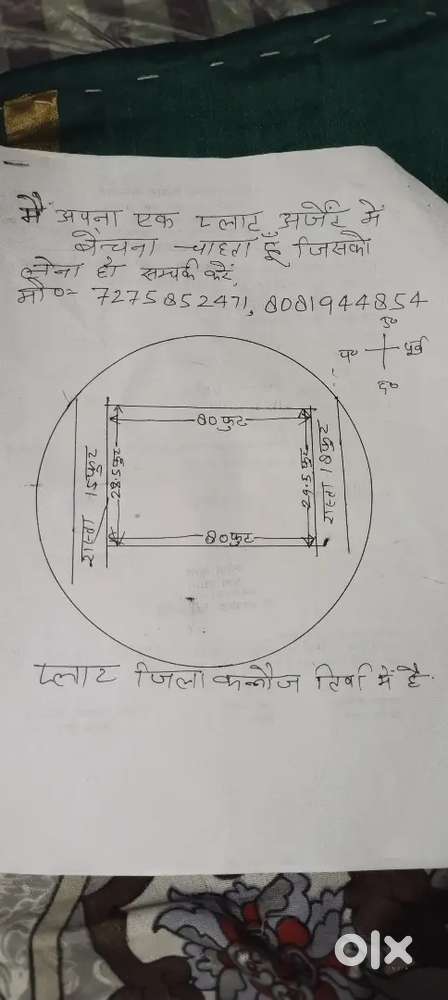 मैं अपना एक प्लाट अर्जेंट में
बेंचना चाहता हूँ जिसको
लेना हो सम्पर्क करें
मो०= 7275852471, 8081944854
उ०
प० पूर्व
द०
80 फुट
रास्ता 15 फुट
29.5 फुट
29.5 फुट
रास्ता 18 फुट
80 फुट
प्लाट जिला कन्नौज तिर्वा में है.
olx